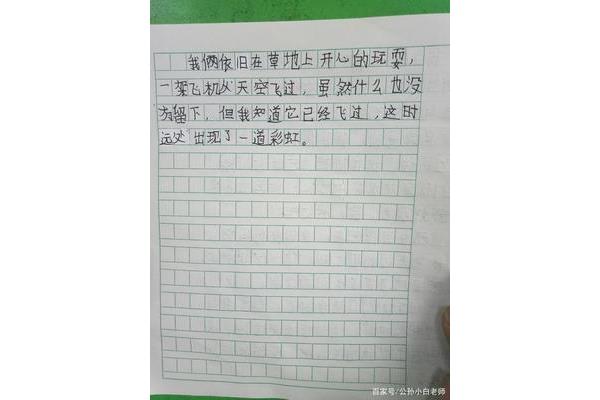 我俩依旧在草地上开心的玩耍，
一架飞机从天空飞过，虽然什么也没
有留下，但我知道它已经飞过，这时
远处出现了一道彩虹。
百家号/公孙小白老师